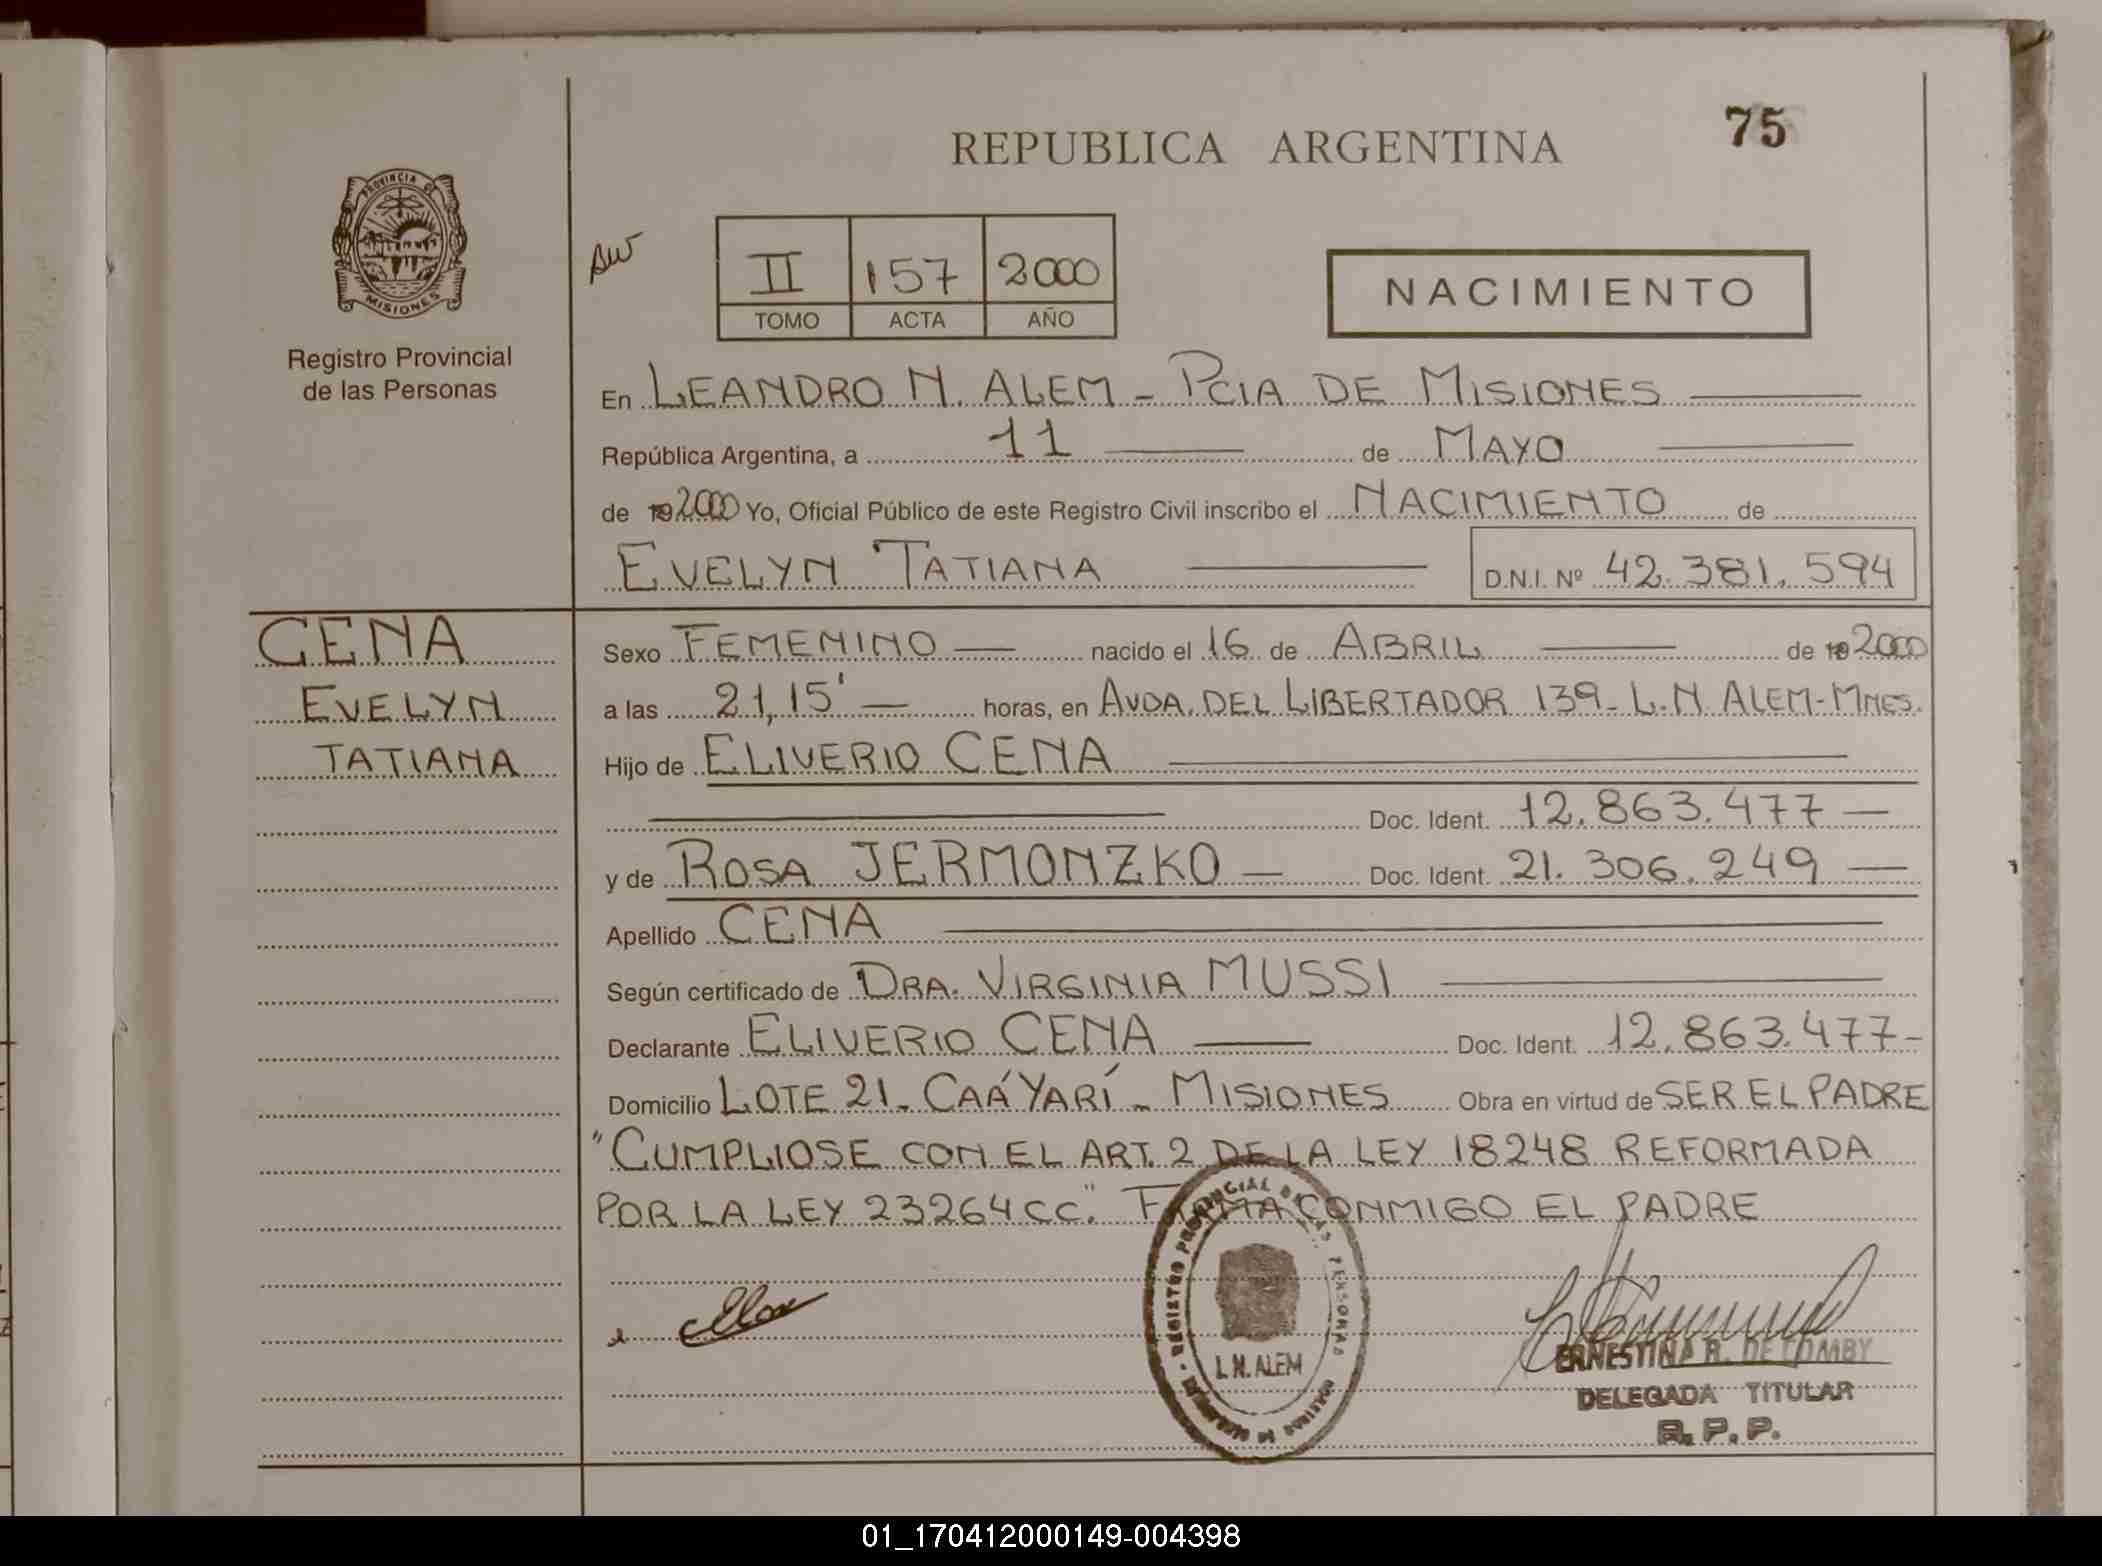 75
REPUBLICA ARGENTINA
PROVINCIA DE
MISIONES
Registro Provincial
de las Personas
II 157 2000
TOMO ACTA AÑO
NACIMIENTO
En LEANDRO N. ALEM - PCIA DE MISIONES
República Argentina, a 11 de MAYO
de 192000 Yo, Oficial Público de este Registro Civil inscribo el NACIMIENTO de
EVELYN TATIANA D.N.I. Nº 42.381.594
CENA
EVELYN
TATIANA
Sexo FEMENINO nacido el 16 de ABRIL de 192000
a las 21,15' horas, en AVDA. DEL LIBERTADOR 139 - L.N ALEM-MNES.
Hijo de ELIVERIO CENA
Doc. Ident. 12.863.477
y de ROSA JERMONZKO Doc. Ident. 21.306.249
Apellido CENA
Según certificado de DRA. VIRGINIA MUSSI
Declarante ELIVERIO CENA Doc. Ident. 12.863.477-
Domicilio LOTE 21- CAÁ YARÍ - MISIONES Obra en virtud de SER EL PADRE
"CUMPLIOSE CON EL ART. 2 DE LA LEY 18248 REFORMADA
POR LA LEY 23264 CC." FIRMA CONMIGO EL PADRE
REGISTRO PROVINCIAL DE LAS PERSONAS
L.N. ALEM
ERNESTINA R. DE COMBY
DELEGADA TITULAR
R.P.P.
01_170412000149-004398